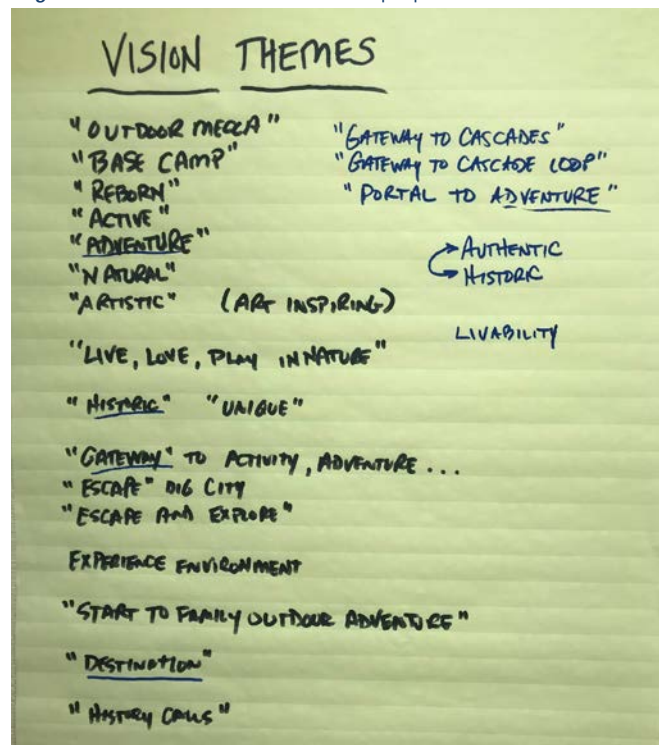 VISION THEMES
"OUTDOOR MECCA"
"BASE CAMP"
"REBORN"
"ACTIVE"
"ADVENTURE"
"NATURAL"
"ARTISTIC" (ART INSPIRING)
"LIVE, LOVE, PLAY IN NATURE"
"HISTORIC" "UNIQUE"
"GATEWAY" TO ACTIVITY, ADVENTURE ...
"ESCAPE" BIG CITY
"ESCAPE AND EXPLORE"
EXPERIENCE ENVIRONMENT
"START TO FAMILY OUTDOOR ADVENTURE"
"DESTINATION"
"HISTORY CALLS"
"GATEWAY TO CASCADES"
"GATEWAY TO CASCADE LOOP"
"PORTAL TO ADVENTURE"
AUTHENTIC
HISTORIC
LIVABILITY